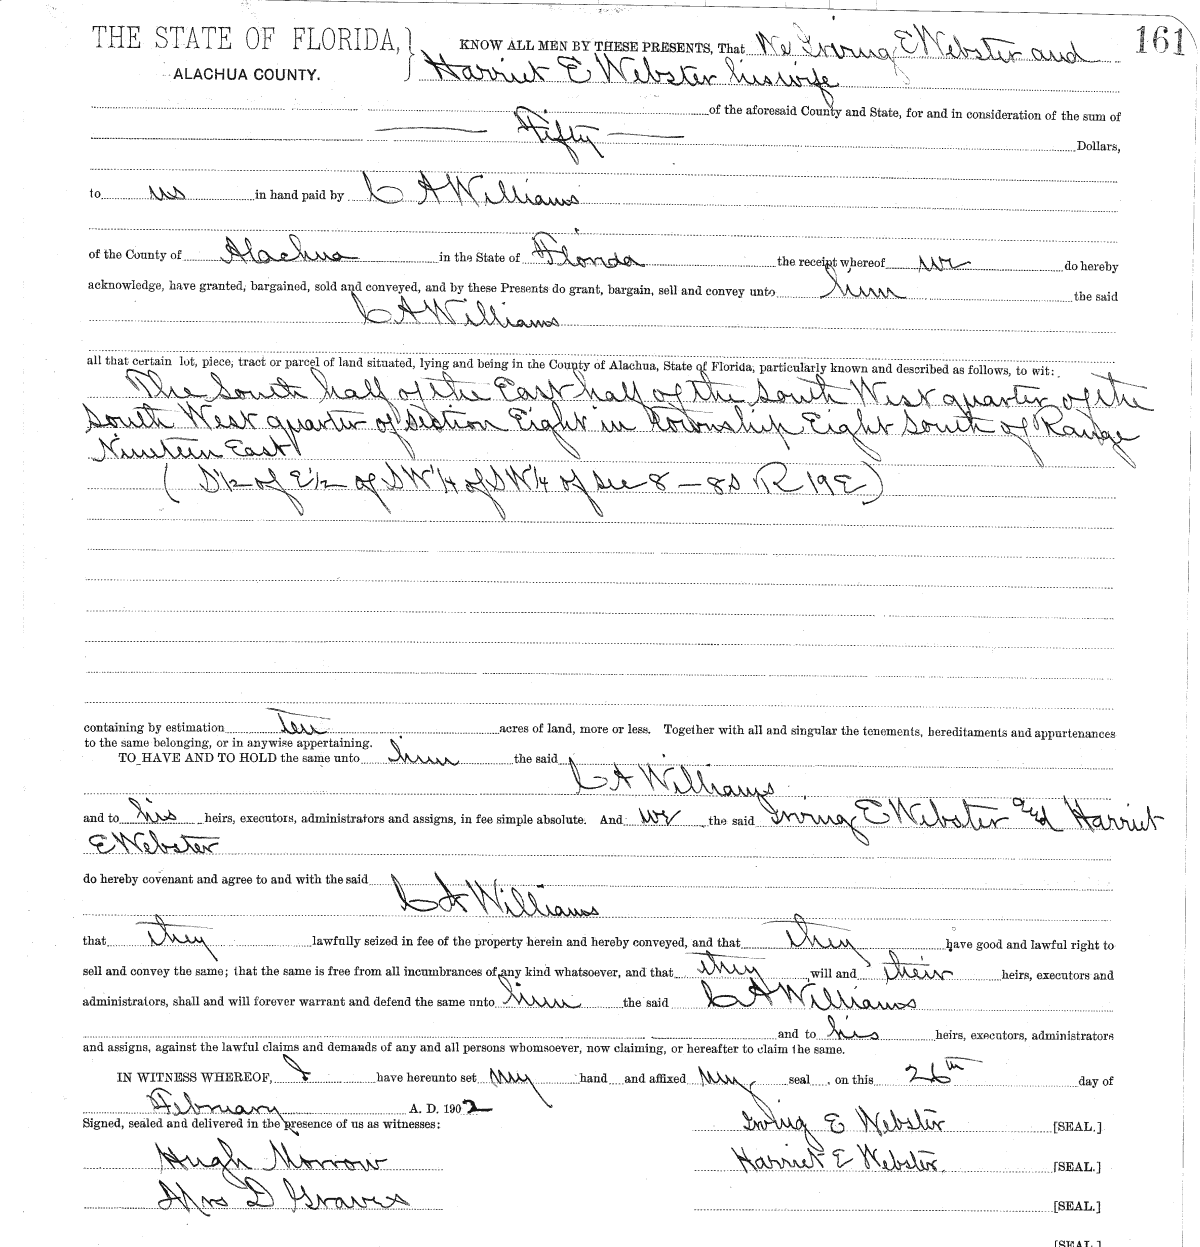 161
THE STATE OF FLORIDA,
ALACHUA COUNTY.
KNOW ALL MEN BY THESE PRESENTS, That We Irving E Webster and
Harriet E Webster his wife
of the aforesaid County and State, for and in consideration of the sum of
Fifty Dollars,
to us in hand paid by C A Williams
of the County of Alachua in the State of Florida the receipt whereof we do hereby
acknowledge, have granted, bargained, sold and conveyed, and by these Presents do grant, bargain, sell and convey unto him the said
C A Williams
all that certain lot, piece, tract or parcel of land situated, lying and being in the County of Alachua, State of Florida, particularly known and described as follows, to wit:
The South half of the East half of the South West quarter of the
South West quarter of Section Eight in Township Eight South of Range
Nineteen East
( S½ of E½ of SW¼ of SW¼ of sec 8 – 8S R 19E )
containing by estimation Ten acres of land, more or less. Together with all and singular the tenements, hereditaments and appurtenances
to the same belonging, or in anywise appertaining.
TO HAVE AND TO HOLD the same unto him the said
C A Williams
and to his heirs, executors, administrators and assigns, in fee simple absolute. And we the said Irving E Webster and Harriet
E Webster
do hereby covenant and agree to and with the said
C A Williams
that they lawfully seized in fee of the property herein and hereby conveyed, and that they have good and lawful right to
sell and convey the same; that the same is free from all incumbrances of any kind whatsoever, and that they will and their heirs, executors and
administrators, shall and will forever warrant and defend the same unto him the said C A Williams
and to his heirs, executors, administrators
and assigns, against the lawful claims and demands of any and all persons whomsoever, now claiming, or hereafter to claim the same.
IN WITNESS WHEREOF, I have hereunto set my hand and affixed my seal on this 26th day of
February A. D. 1902
Signed, sealed and delivered in the presence of us as witnesses:
Irving E Webster [SEAL.]
Hugh Morrow
Harriet E Webster [SEAL.]
Mrs D Graves
[SEAL.]
[SEAL.]